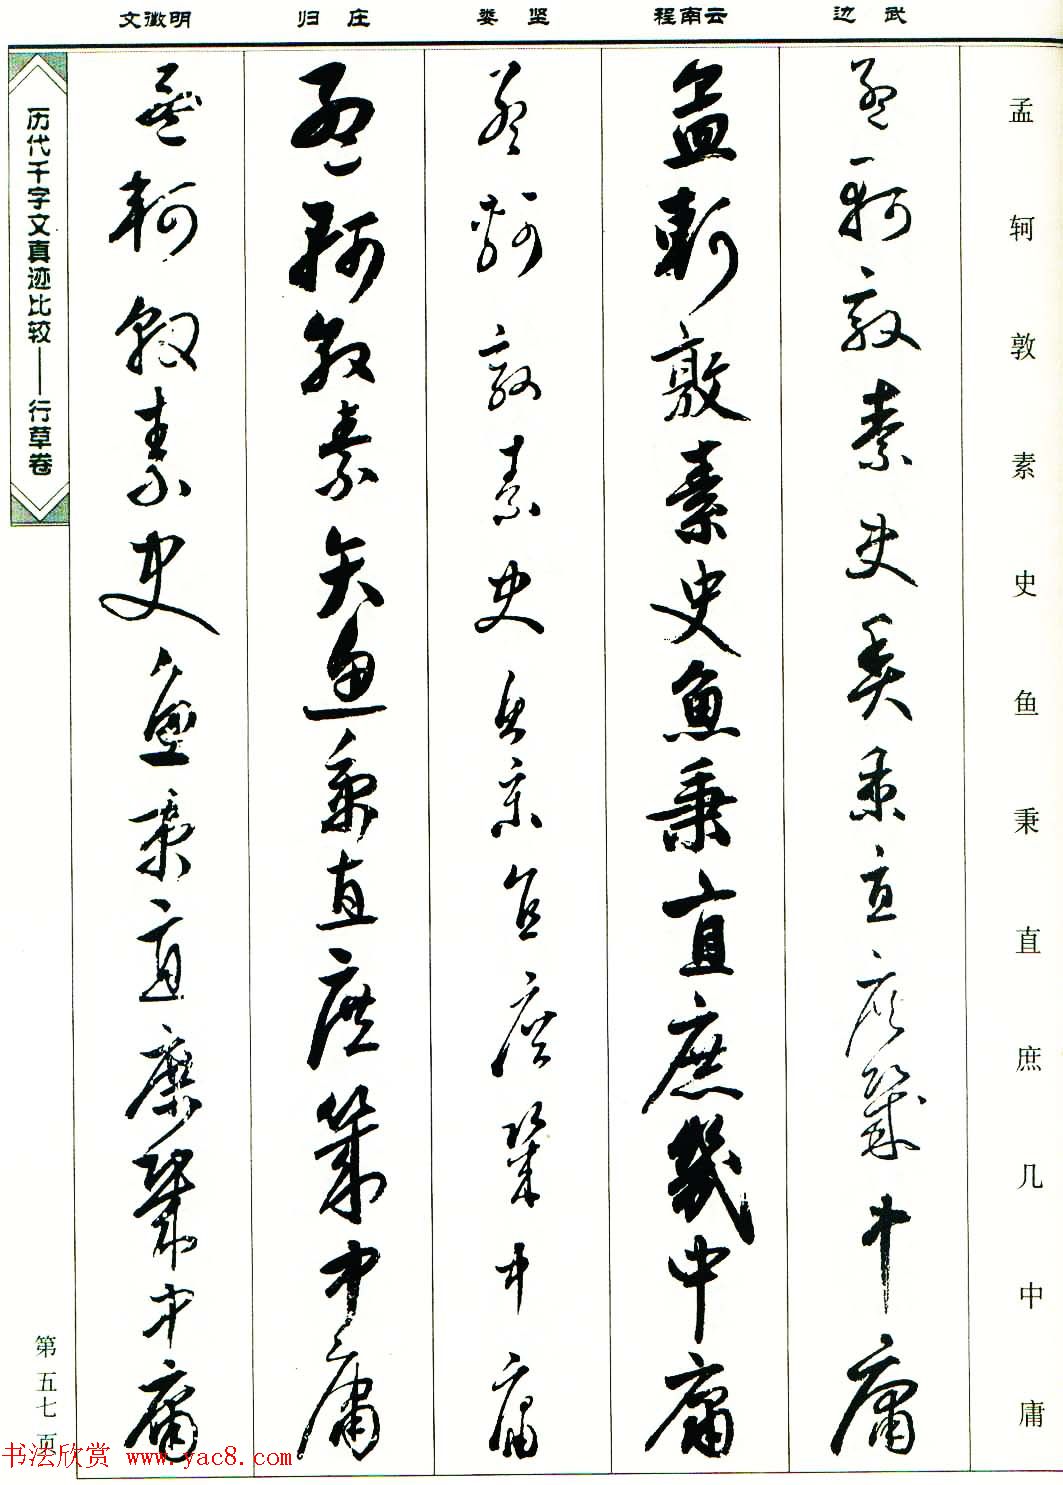 孟轲敦素史鱼秉直庶几中庸
边武
孟軻敦素史魚秉直庶幾中庸
程南云
孟軻敦素史魚秉直庶幾中庸
娄坚
孟軻敦素史魚秉直庶幾中庸
归庄
孟軻敦素史魚秉直庶幾中庸
文徵明
孟軻敦素史魚秉直庶幾中庸
历代千字文真迹比较——行草卷
第五七页
书法欣赏 www.yac8.com